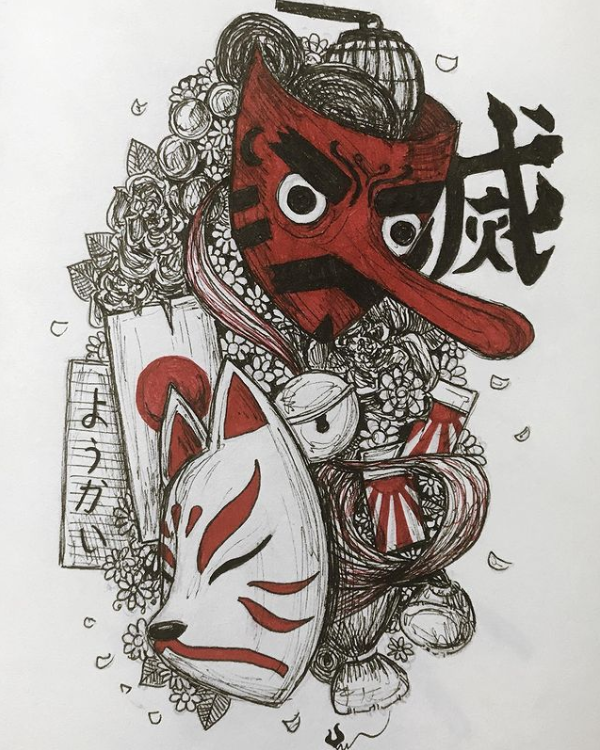 滅
ようかい